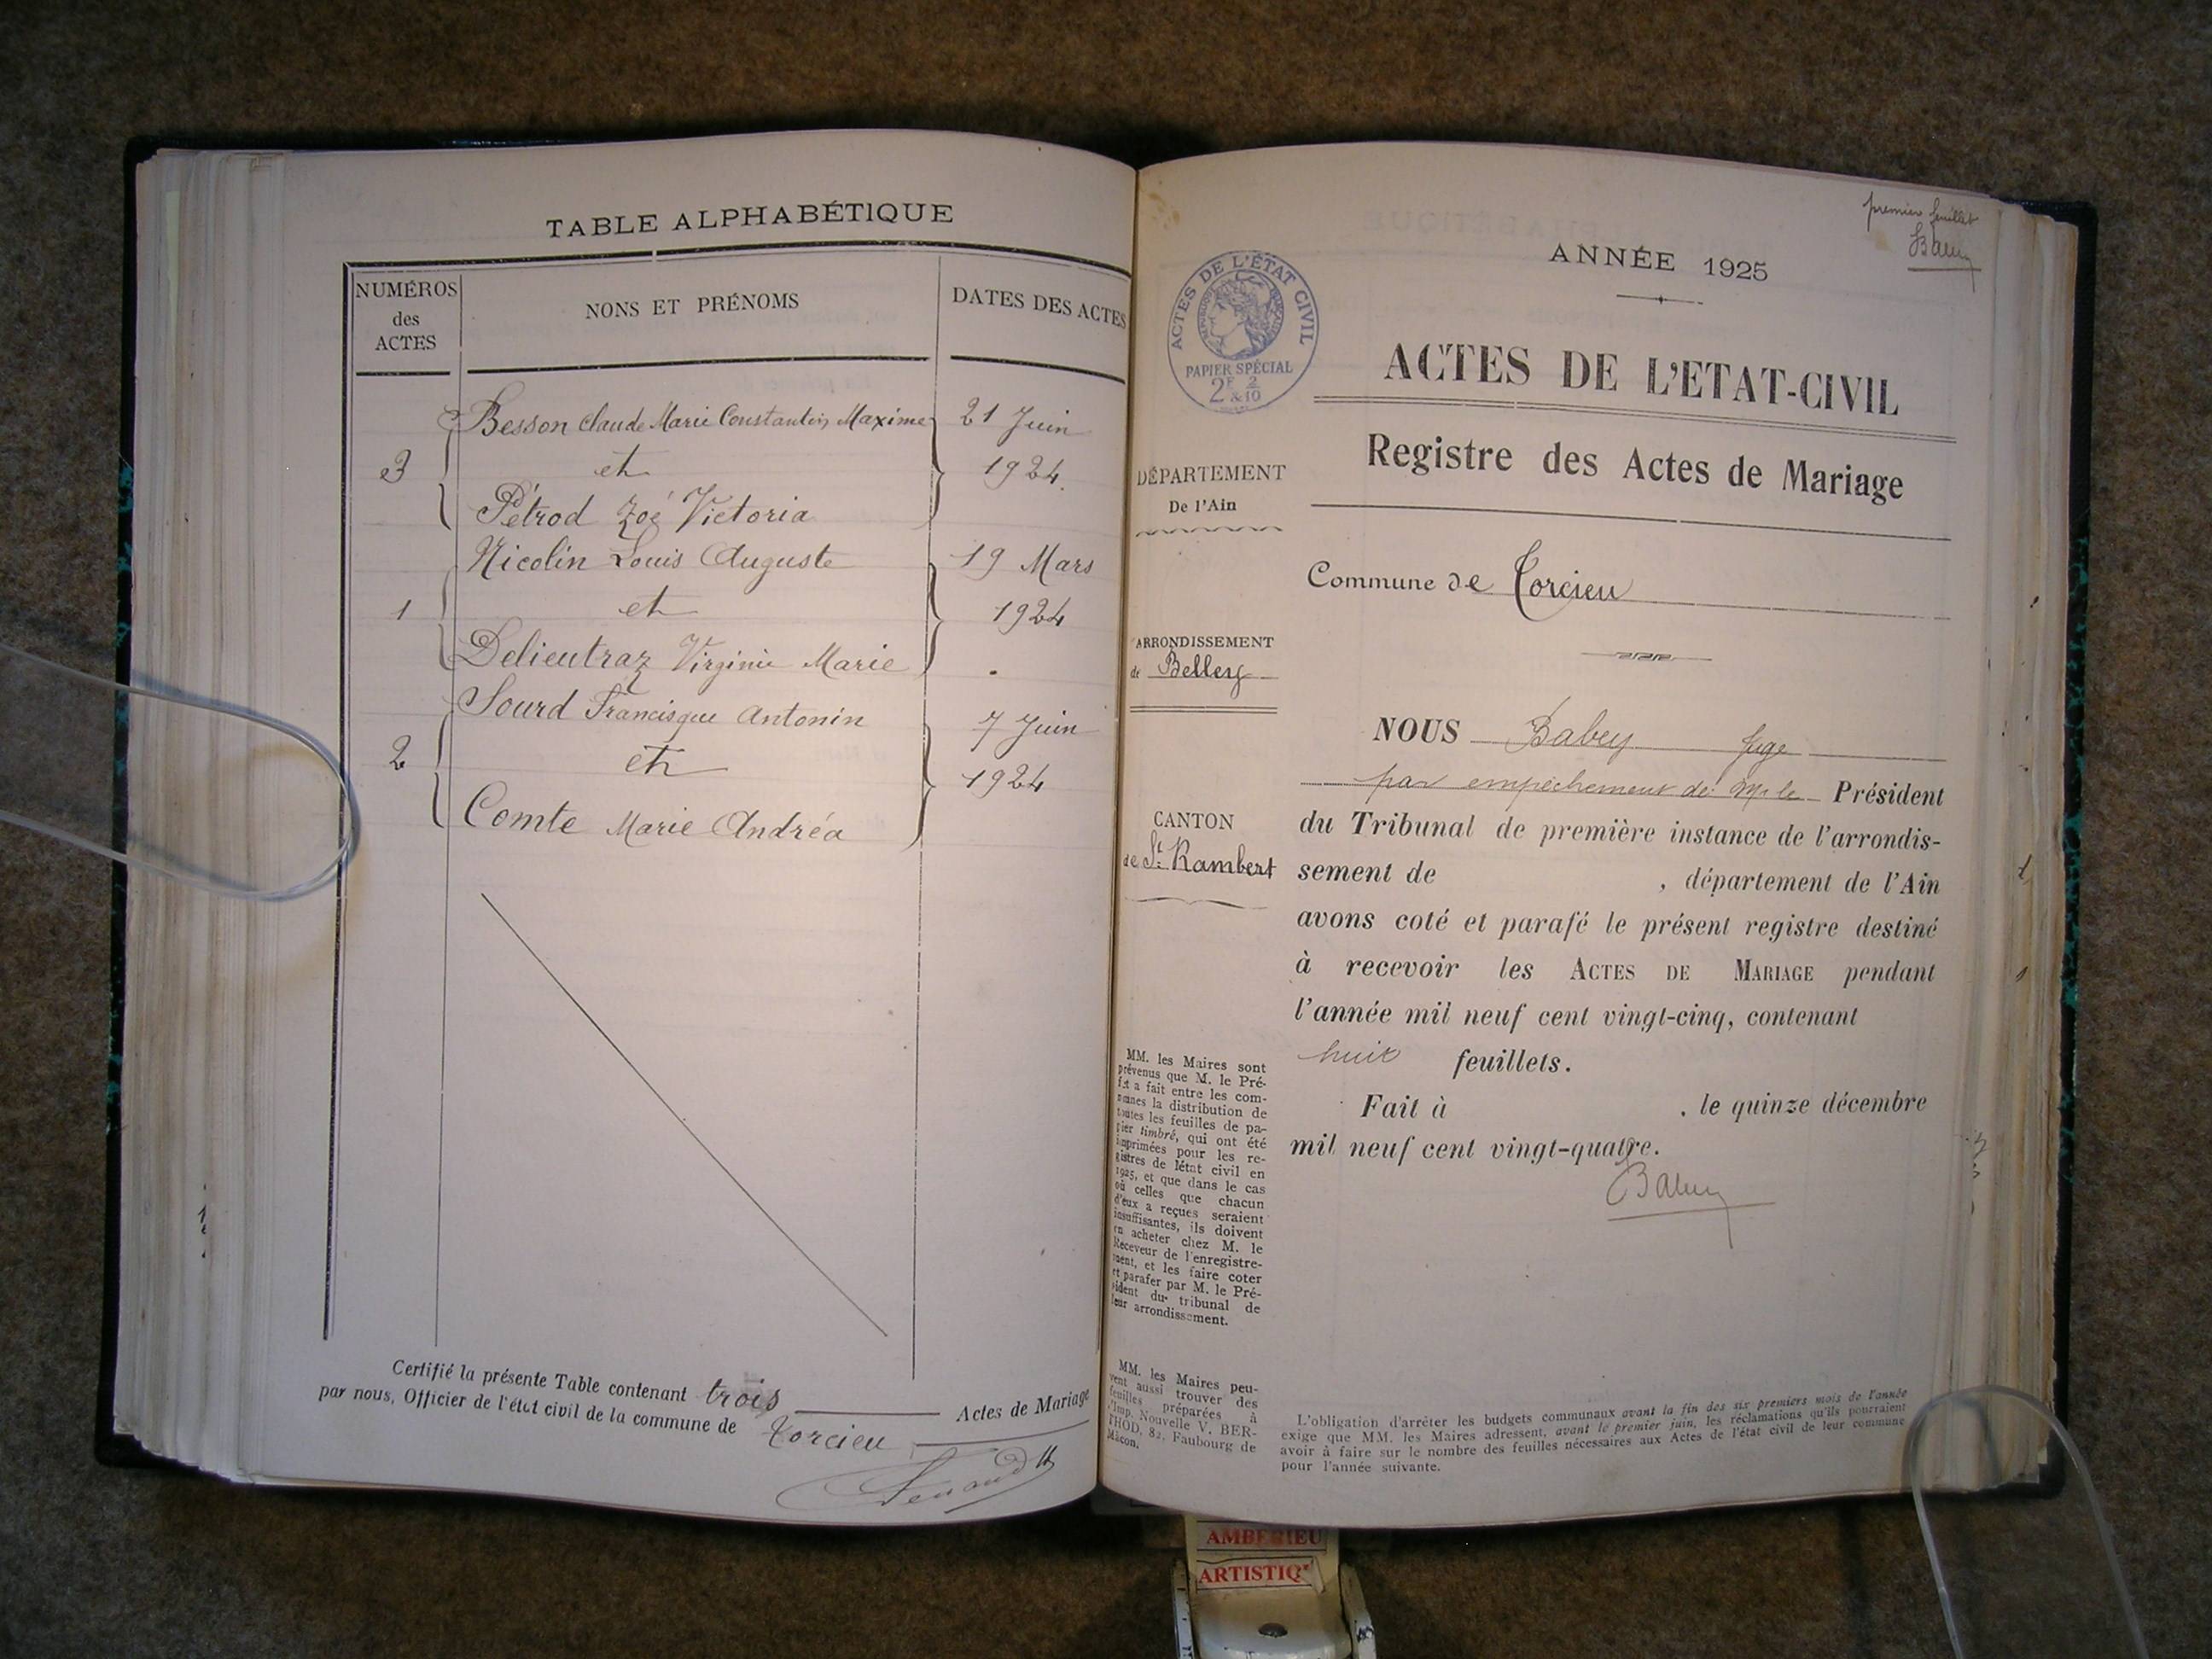 TABLE ALPHABÉTIQUE
NUMÉROS
des
ACTES
NONS ET PRÉNOMS
DATES DES ACTES
Besson Claude Marie Constantin Maxime
21 Juin
3
et
1924
Pétrod Zoé Victoria
Nicolin Louis Auguste
19 Mars
1
et
1924
Delieutraz Virginie Marie
Sourd Francisque Antonin
7 Juin
2
et
1924
Comte Marie Andréa
Certifié la présente Table contenant trois Actes de Mariage
par nous, Officier de l'état civil de la commune de Torcieu
premier feuillet
Babey
ANNÉE 1925
ACTES DE L'ÉTAT CIVIL
RÉPUBLIQUE FRANÇAISE
PAPIER SPÉCIAL
2F & 2/10
ACTES DE L'ETAT-CIVIL
Registre des Actes de Mariage
DÉPARTEMENT
De l'Ain
Commune de Torcieu
ARRONDISSEMENT
de Belley
CANTON
de St Rambert
NOUS Babey Juge
par empêchement de Mr le Président
du Tribunal de première instance de l'arrondis-
sement de , département de l'Ain
avons coté et parafé le présent registre destiné
à recevoir les ACTES DE MARIAGE pendant
l'année mil neuf cent vingt-cinq, contenant
huit feuillets.
Fait à , le quinze décembre
mil neuf cent vingt-quatre.
Babey
MM. les Maires sont
prévenus que M. le Pré-
fet a fait entre les com-
munes la distribution de
toutes les feuilles de pa-
pier timbré, qui ont été
imprimées pour les re-
gistres de létat civil en
1925, et que dans le cas
où celles que chacun
d'eux a reçues seraient
insuffisantes, ils doivent
en acheter chez M. le
Receveur de l'enregistre-
ment, et les faire coter
et parafer par M. le Pré-
sident du tribunal de
leur arrondissement.
MM. les Maires peu-
vent aussi trouver des
feuilles préparées à
l'Imp. Nouvelle V. BER-
THOD, 82, Faubourg de
Mâcon.
L'obligation d'arrêter les budgets communaux avant la fin des six premiers mois de l'année
exige que MM. les Maires adressent, avant le premier juin, les réclamations qu'ils pourraient
avoir à faire sur le nombre des feuilles nécessaires aux Actes de l'état civil de leur commune
pour l'année suivante.
AMBERIEU
ARTISTIQ